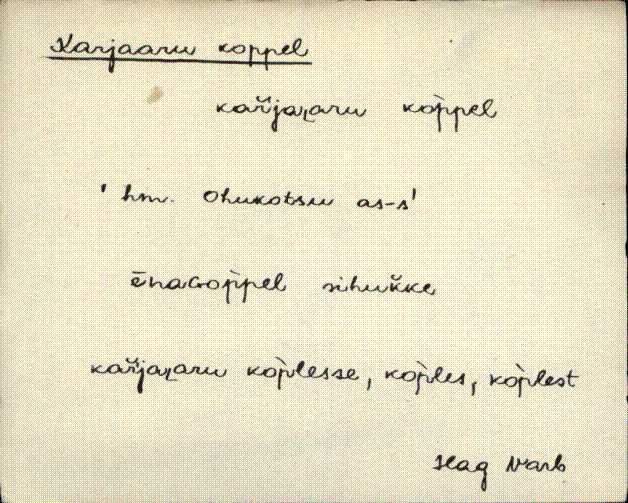 Karjaaru koppel
kařja͔aru kòppel
' hm. Ohukotsu as-s'
ēnaGòppel sihukke
kařja͔aru kòplesse, kòples, kòplest
Hag Varb